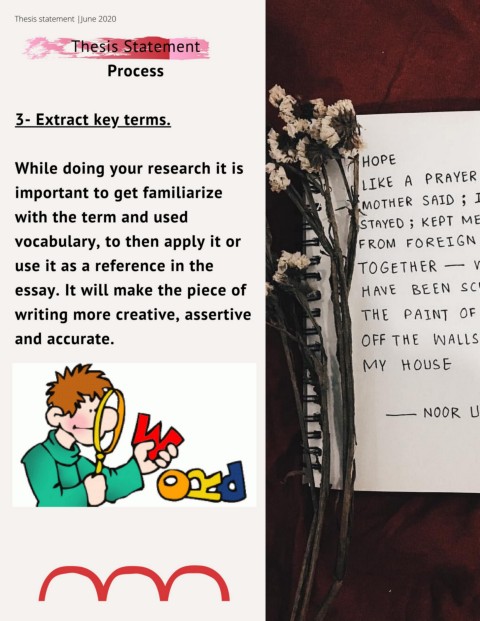 Thesis statement |June 2020
Thesis Statement
Process
3- Extract key terms.
While doing your research it is
important to get familiarize
with the term and used
vocabulary, to then apply it or
use it as a reference in the
essay. It will make the piece of
writing more creative, assertive
and accurate.
W
ORD
HOPE
LIKE A PRAYER
MOTHER SAID ;
STAYED ; KEPT ME
FROM FOREIGN
TOGETHER —
HAVE BEEN
THE PAINT OF
OFF THE WALLS
MY HOUSE
— NOOR